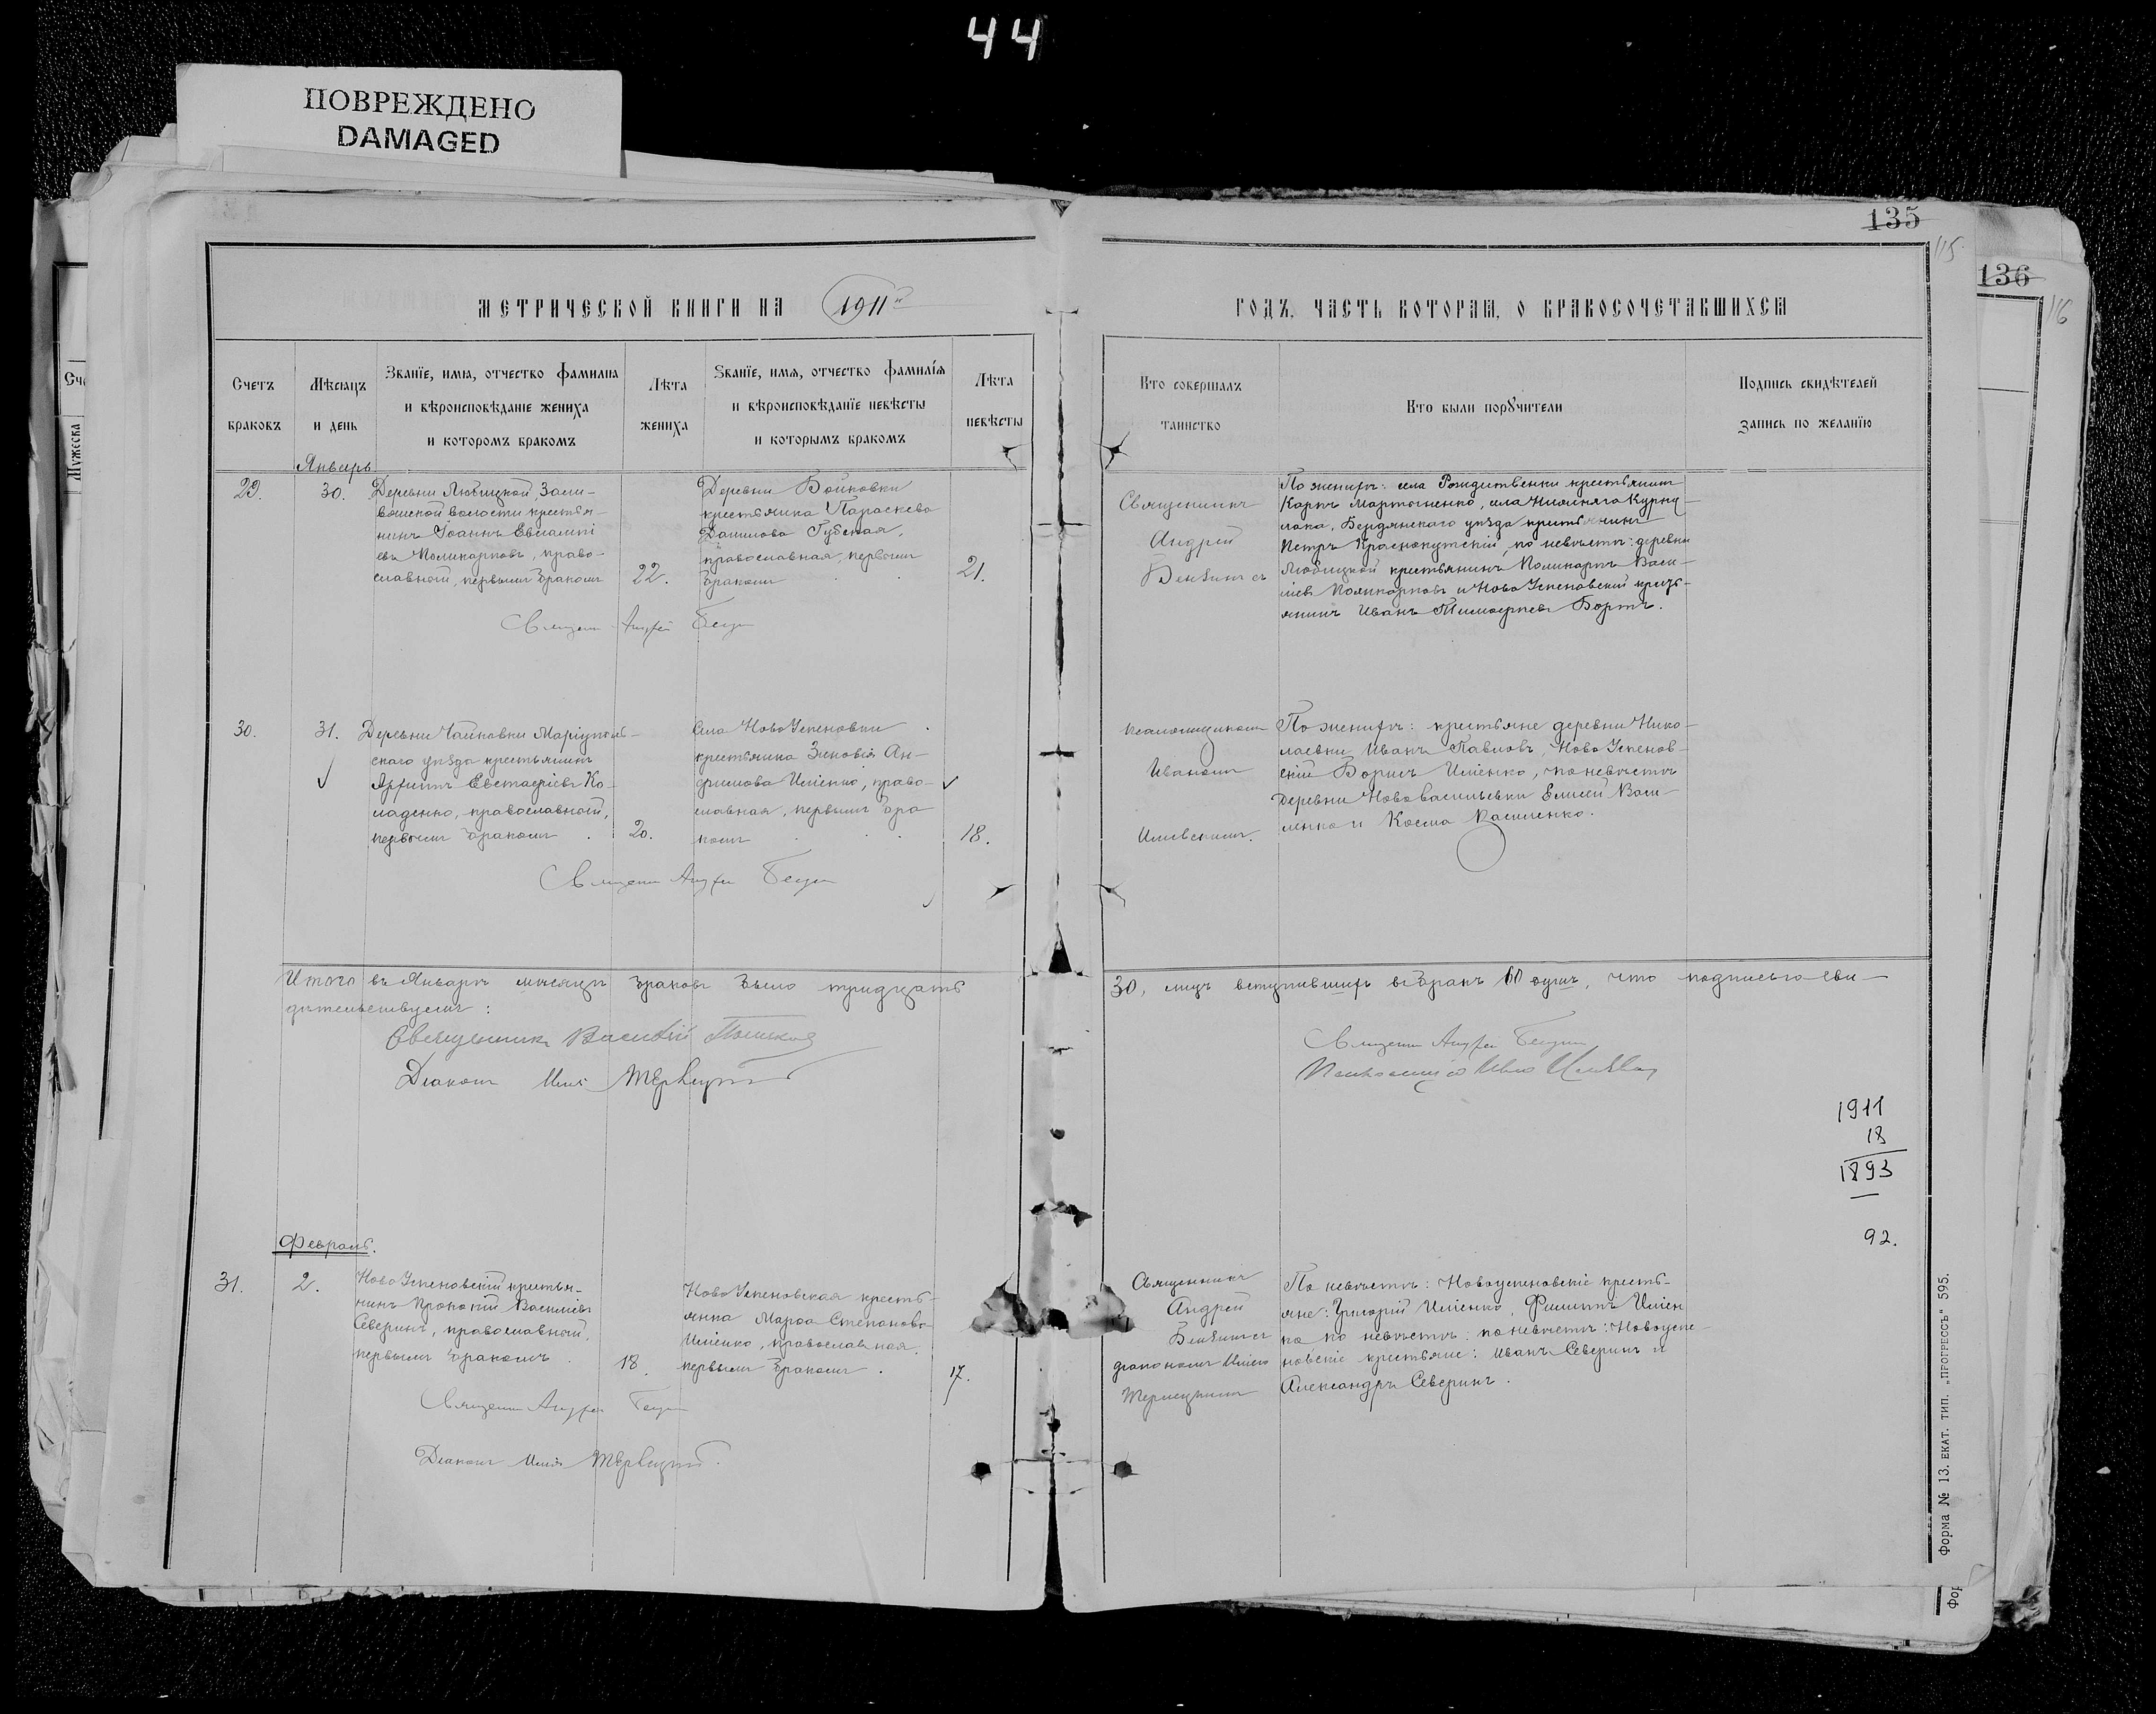 44
ПОВРЕЖДЕНО
DAMAGED
135
115
136
116
МЕТРИЧЕСКОЙ КНИГИ НА 1911й
ГОДЪ, ЧАСТЬ ВТОРАЯ, О БРАКОСОЧЕТАВШИХСЯ
Счетъ браковъ
Мѣсяцъ и день
Званїе, имя, отчество фамилиа
и вѣроисповѣданіе жениха
и которомъ бракомъ
Лѣта жениха
Званїе, имя, отчество фамилїя
и вѣроисповѣданїе невѣсты
и которымъ бракомъ
Лѣта невѣсты
Кто совершалъ таинство
Кто были порȣчители
Подпись свидѣтелей
запись по желанїю
Январь
29.
30.
Деревни Любицкой,
волости крестья-
нинъ Іоаннъ
евъ Поликарповъ, право-
славный, первымъ бракомъ
22.
Деревни Бойковки
крестьянка Параскева
Данилова Губская,
православная, первымъ
бракомъ
21.
Священникъ
Андрей
По женихѣ: села Рождественки крестьянинъ
Карпъ Мартыненко, села Нижняго Курку-
лака, Бердянскаго уѣзда крестьянинъ
Петръ Краснокутскій, по невѣстѣ: деревни
Любицкой крестьянинъ Поликарпъ Васи-
ліевъ Поликарповъ и Ново Успеновскій кресть-
янинъ Иванъ Тимоѳеевъ Бортъ.
Священ Андрей
30.
31.
Деревни Чайковки Маріуполь-
скаго уѣзда крестьянинъ
Евстафіевъ Ко-
ладенко, православный,
первымъ бракомъ
20.
Села Ново Успеновки
крестьянка Зиновія Ан-
Иліенко, право-
славная, первымъ бра
комъ
18.
псаломщикомъ
Иваномъ
По женихѣ: крестьяне деревни Нико-
лаевки Иванъ Павловъ, Ново Успенов-
скій Борисъ Иліенко, по невѣстѣ
Деревни Нововасильевки Елисей Васи-
ленко и Косма Василенко.
Священ Андрей
Итого въ Январѣ мѣсяцѣ браковъ было тридцать
30, лицъ вступившихъ въ бракъ 60 душъ, что подписью сви-
дѣтельствуемъ:
Священникъ Василій
Діаконъ
Священ Андрей
1911
18
1893
92.
Февраль.
31.
2.
Ново Успеновскій крестья-
нинъ Прокопій Василіевъ
Северинъ, православный,
первымъ бракомъ
18.
Ново Успеновская кресть-
янка Марѳа Степанова
Иліенко, православная,
первымъ бракомъ
17.
Священникъ
Андрей
По невѣстѣ: Новоуспеновскіе кресть-
яне: Григорій Иліенко, Филиппъ Иліен
ко по невѣстѣ: по невѣстѣ: Новоуспе-
новскіе крестьяне: Иванъ Северинъ и
Александръ Северинъ.
Священ Андрей
Діаконъ
Форма № 13. ЕКАТ. ТИП. „ПРОГРЕССЪ" 595.
Фор